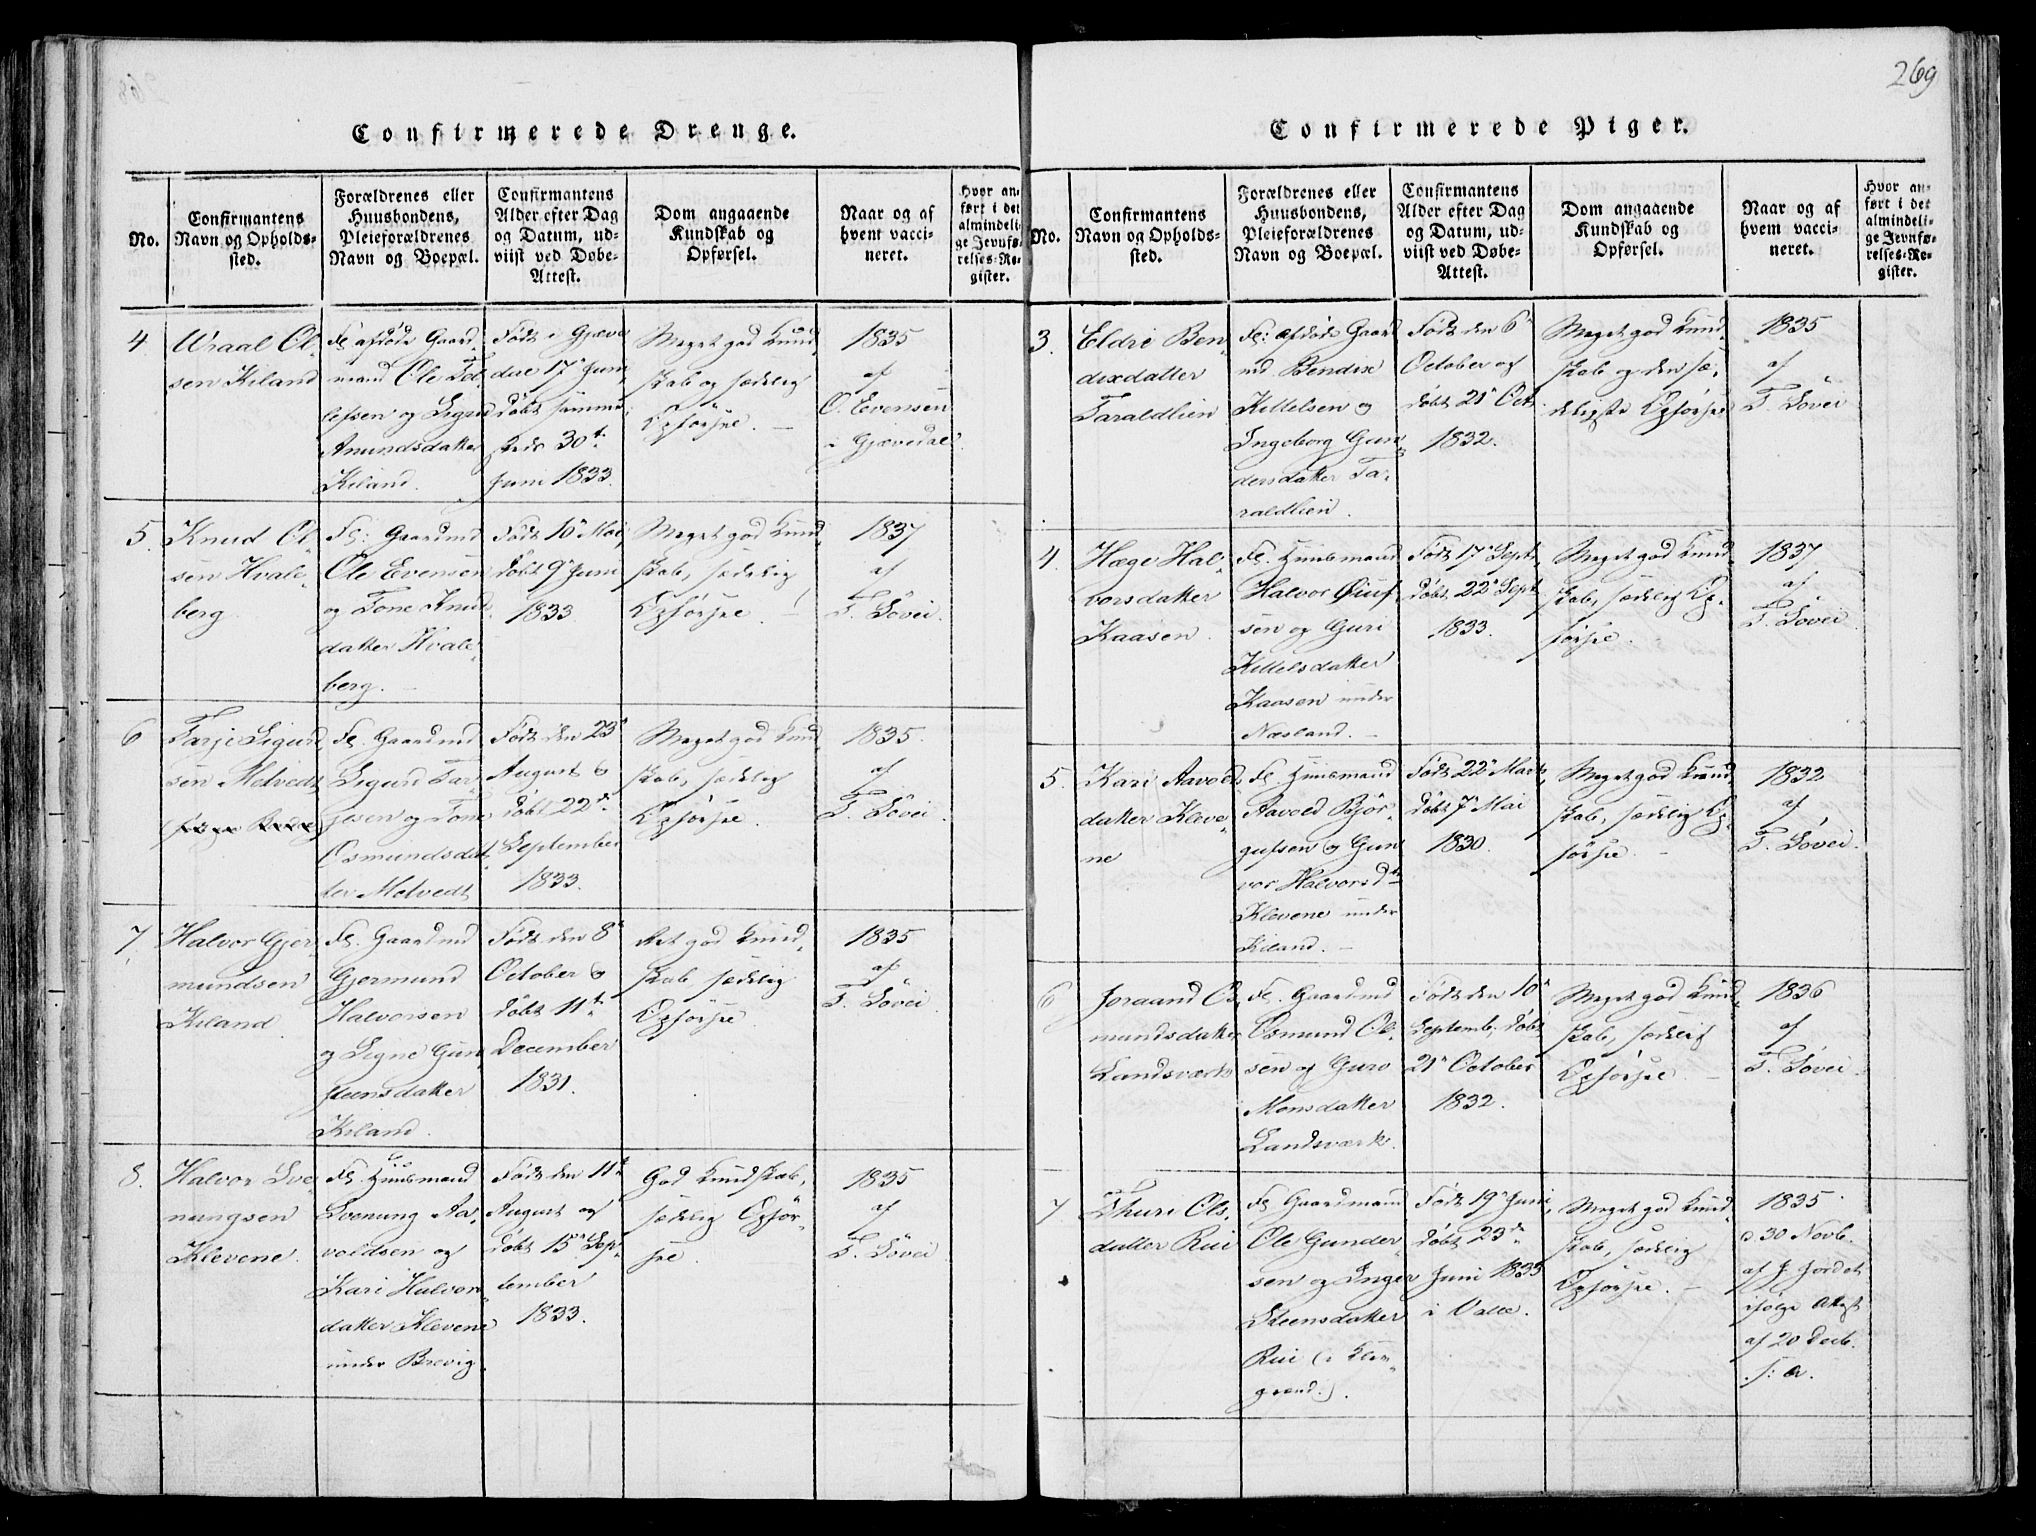 269
Confirmerede Drenge.
No.
Confirmantens
Navn og Opholds-
sted.
Forældrenes eller
Huusbondens,
Pleieforældrenes
Navn og Boepæl.
Confirmantens
Alder efter Dag
og Datum, ud-
viist ved Døbe-
Attest.
Dom angaaende
Kundskab og
Opførsel.
Naar og af
hvem vacci-
neret.
Hvor an-
ført i det
almindeli-
ge Jevnfø-
relses-Re-
gister.
4
Wraal Ol-
sen Kiland
Fr. afdøde Gaard-
mand Ole Tel-
lefsen og Sigrid
Anundsdatter
Kiland.
Født i Gjæve-
dal 17 Juni,
døbt samme-
steds 30te
Juni 1833.
Meget god Kund-
skab og sædelig
Opførsel.
1835
af
O. Evensen
i Gjævedal
5.
Knud Ol-
sen Hvale-
berg.
Fr: Gaardmd
Ole Evensen
og Tone Knuds-
datter Hvale-
berg.
Født 10de Mai,
døbt 9de Juni
1833.
Meget god Kund-
skab, sædelig
Opførsel.
1837
af
T. Løvei.
6
Tarje Sigurd-
sen Metvedt
Fr. Gaardmd
Sigurd Tar-
jesen og Tone
Osmundsdat-
ter Metvedt
Født den 23de
August &
døbt 22de
September
1833.
Meget god Kund-
skab, sædelig
Opførsel.
1835.
af
T. Løvei.
7.
Halvor Gjer-
mundsen
Kiland
Fr. Gaardmd
Gjermund
Halvorsen
og Signe Gun-
steensdatter
Kiland.
Født den 8de
October &
døbt 11te
December
1831.
Ret god Kund-
skab sædelig
Opførsel.
1835
af
T. Løvei
8.
Halvor Sve-
nungsen
Klevene.
Fr. Huusmand
Svenung Aa-
voldsen og
Kari Halvors-
datter Klevene
under Brevig.
Født den 11te
August og
døbt 15de Sep-
tember
1833.
God Kundskab,
sædelig Opfør-
sel.
1835
af
T. Løvei
Confirmerede Piger.
No.
Confirmantens
Navn og Opholds-
sted.
Forældrenes eller
Huusbondens,
Pleieforældrenes
Navn og Boepæl.
Confirmantens
Alder efter Dag
og Datum, ud-
viist ved Døbe-
Attest.
Dom angaaende
Kundskab og
Opførsel.
Naar og af
hvem vacci-
neret.
Hvor an-
ført i det
almindeli-
ge Jevnfø-
relses-Re-
gister.
3.
Eldri Ben-
dixdatter
Taraldlien
Fr: afdøde Gaard-
md. Bendix
Kittelsen og
Ingeborg Gun-
dersdatter Ta-
raldlien.
Født den 6te
October og
døbt 21de Oct.
1832.
Meget god Kund-
skab og den sæ-
deligste Opførsel
1835
af
T. Løvei
4.
Hæge Hal-
vorsdatter
Kaasen.
Fr. Huusmand
Halvor Øiuf-
sen og Guri
Kittelsdatter
Kaasen under
Næsland.
Født 17de Sept.,
døbt 22de Sept.
1833.
Meget god Kund-
skab, sædelig Op-
førsel.
1837
af
T. Løvei.
5.
Kari Aavolds-
datter Kleve-
ne
Fr. Huusmand
Aavold Bjør-
gufsen & Gun-
vor Halvorsdtr
Klevene under
Kiland.
Født 22de Marts,
døbt 7de Mai
1830.
Meget god Kund-
skab, sædelig Op-
førsel.
1832
af
T. Løvei.
6
Joraand Os-
mundsdatter
Landsværk
Fr. Gaardmd
Osmund Ol-
sen og Guro
Monsdatter
Landsværk.
Født den 10de
Septemb., døbt
21de October
1832.
Meget god Kund-
skab, sædelig
Opførsel.
1836
af
T. Løvei.
7
Thuri Ols-
datter Rui
Fr. Gaardmand
Ole Gunder-
sen og Inger
Steensdatter
Rui
Født 19de Juni,
døbt 23de
Juni 1833
i Valle.
Meget god Kund-
skab, sædelig
Opførsel.
1835
d. 30 Novb.
af J. Jordet
ifølge Attest
af 20 Decb.
s: A.